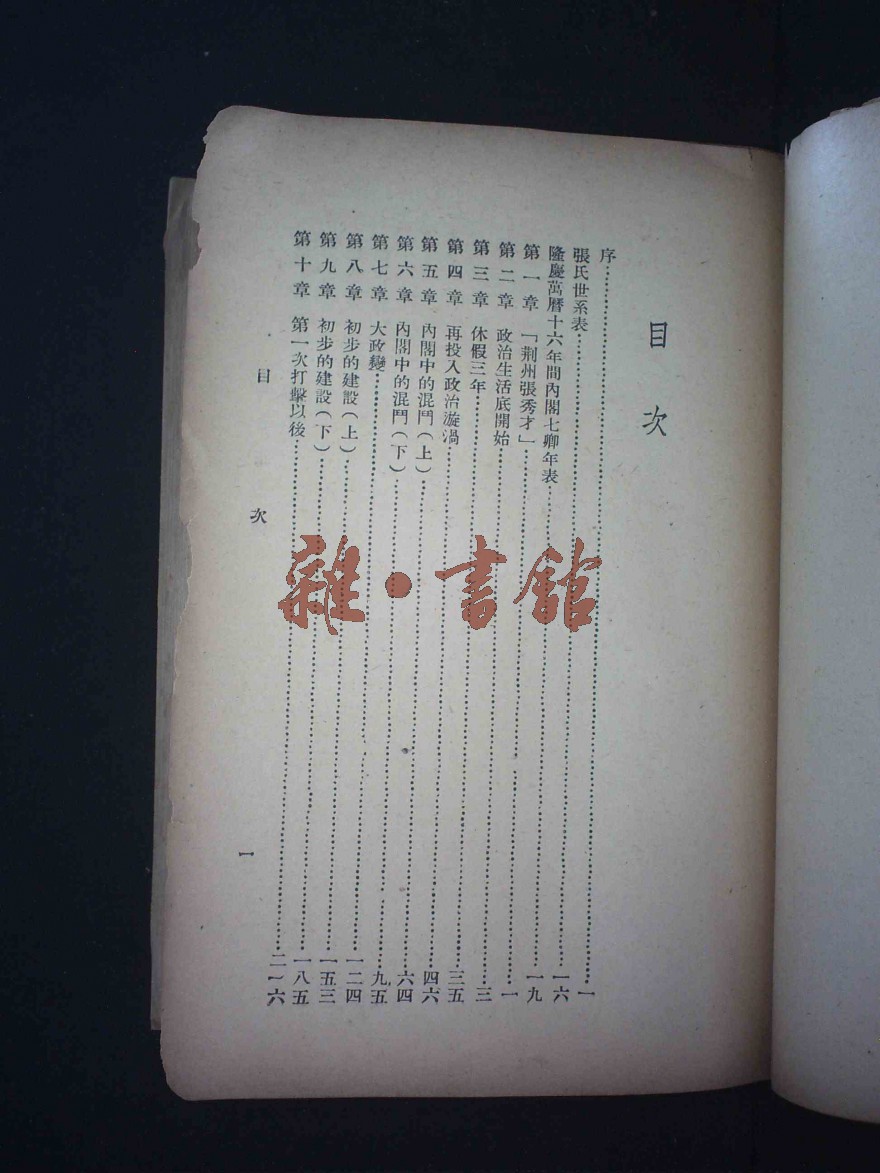 目次
序……一
張氏世系表……一六
隆慶萬曆十六年間內閣七卿年表……一九
第一章 「荆州張秀才」……一
第二章 政治生活底開始……三
第三章 休假三年……三五
第四章 再投入政治漩渦……四六
第五章 內閣中的混鬥（上）……六四
第六章 內閣中的混鬥（下）……九五
第七章 大政變……一二四
第八章 初步的建設（上）……一五三
第九章 初步的建設（下）……一八五
第十章 第一次打擊以後……二一六
目次
一
雜·書館